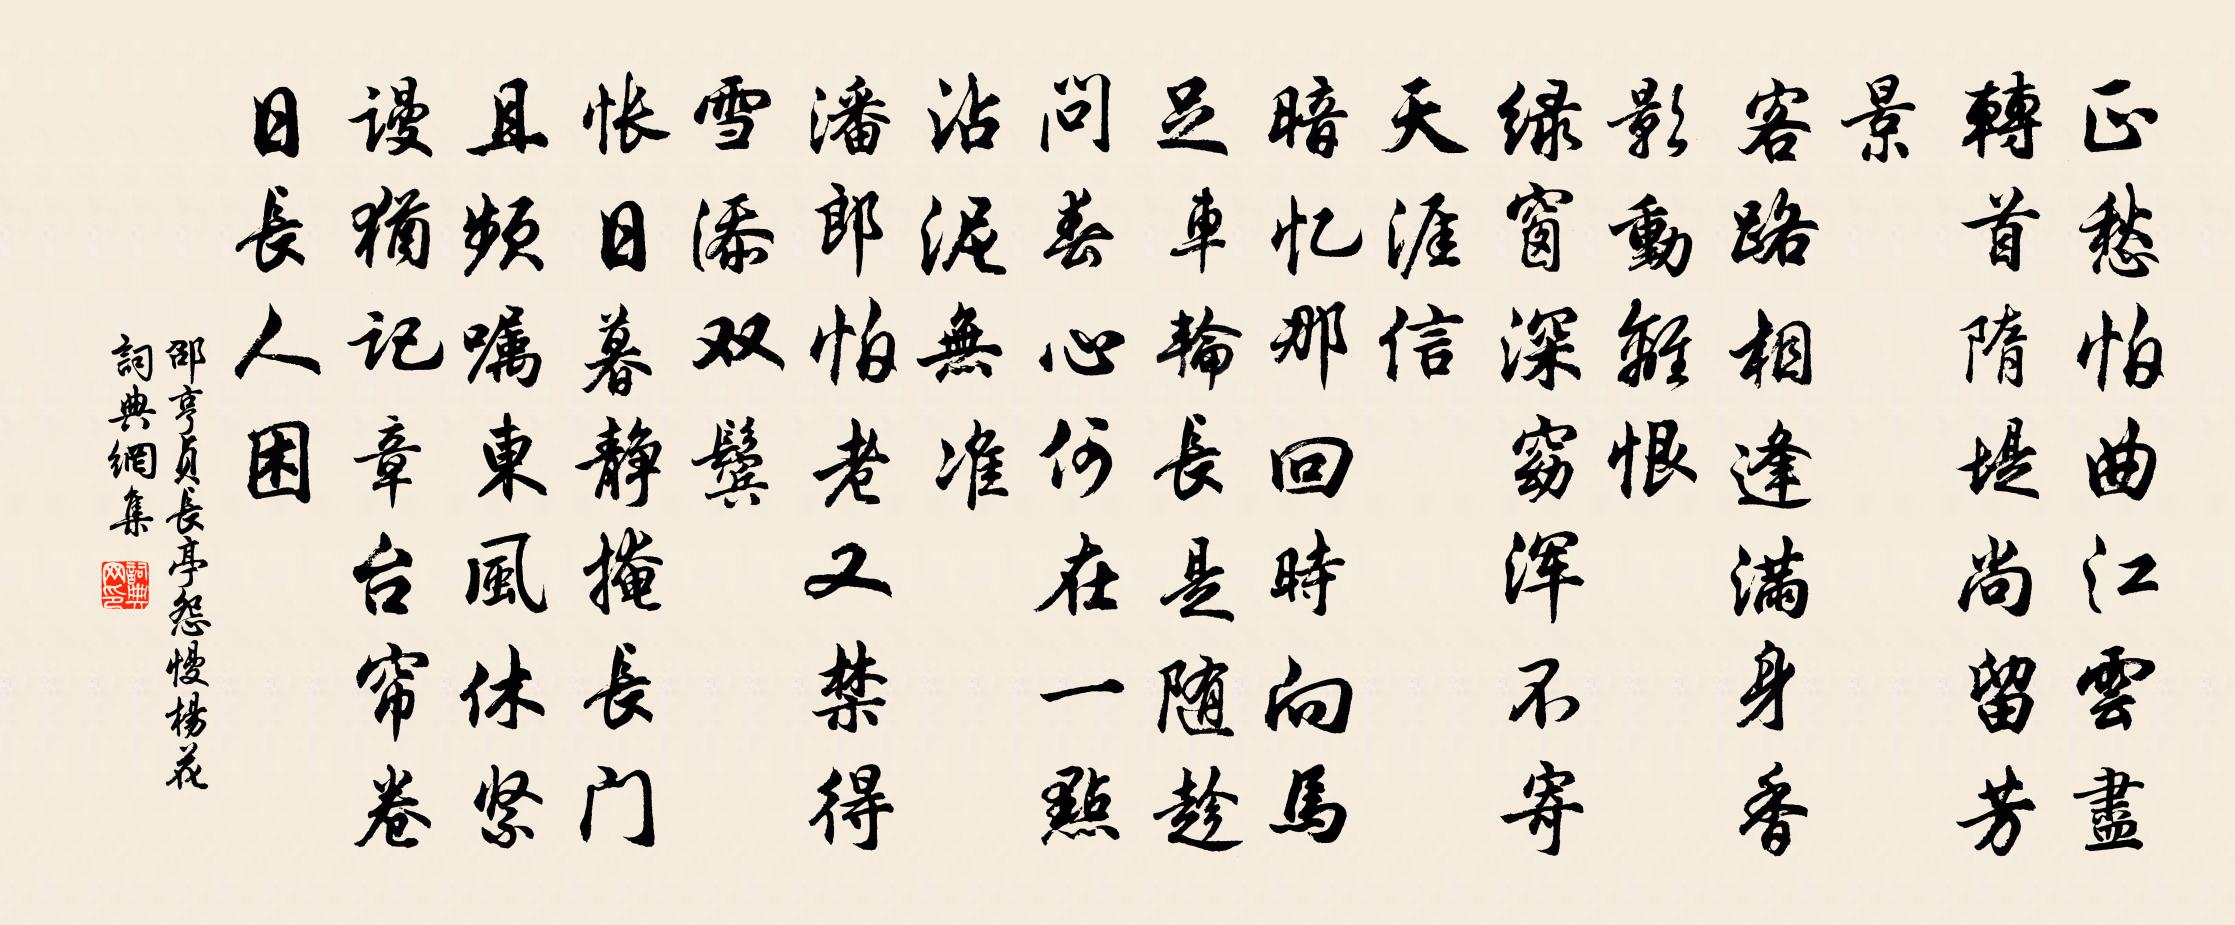 正愁怕曲江雲盡
轉首隋堤尚留芳
景
客路相逢滿身香
影動離恨
绿窗深窈浑不寄
天涯信
暗忆那回時向馬
足車輪長是随趁
問春心何在一點
沾泥無准
潘郎怕老又禁得
雪添双鬓
怅日暮静掩長门
且频嘱東風休紧
谩犹记章台帘卷
日長人困
邵亨貞長亭怨慢楊花
詞典網集
詞典网印